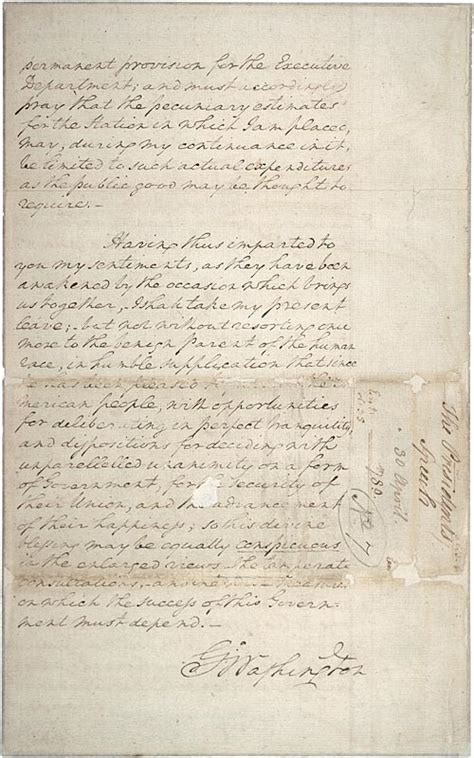 permanent provision for the Executive
Department; and must accordingly
pray that the pecuniary estimates
for the Station in which I am placed,
may, during my continuance in it,
be limited to such actual expenditures
as the public good may be thought to
require.—
Having thus imparted to
you my sentiments, as they have been
awakened by the occasion which brings
us together, I shall take my present
leave;—but not without resorting once
more to the benign Parent of the human
race, in humble supplication that since
he has been pleased to
merican people, with opportunities
for deliberating in perfect tranquility,
and dispositions for deciding with
unparellelled unanimity on a form
of Government, for the Security of
their Union, and the advancement
of their happiness; so his divine
blessing may be equally conspicuous
in the enlarged views the temperate
consultations, and the wise
on which the success of this Govern-
ment must depend.—
G. Washington
The President's
Speech
30 April
1789
No 7